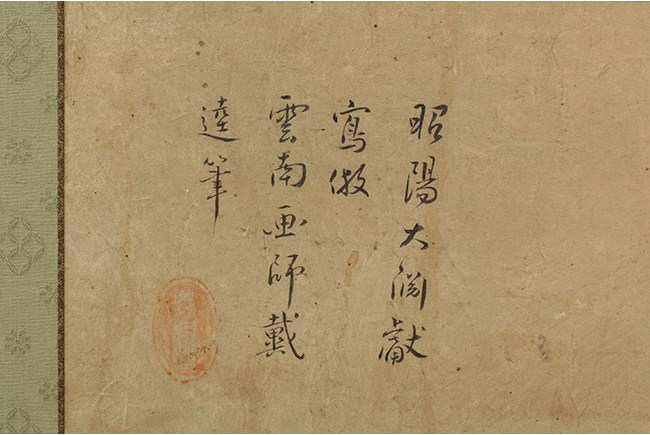 昭陽大淵献
寫倣
雲南画師戴
逵筆